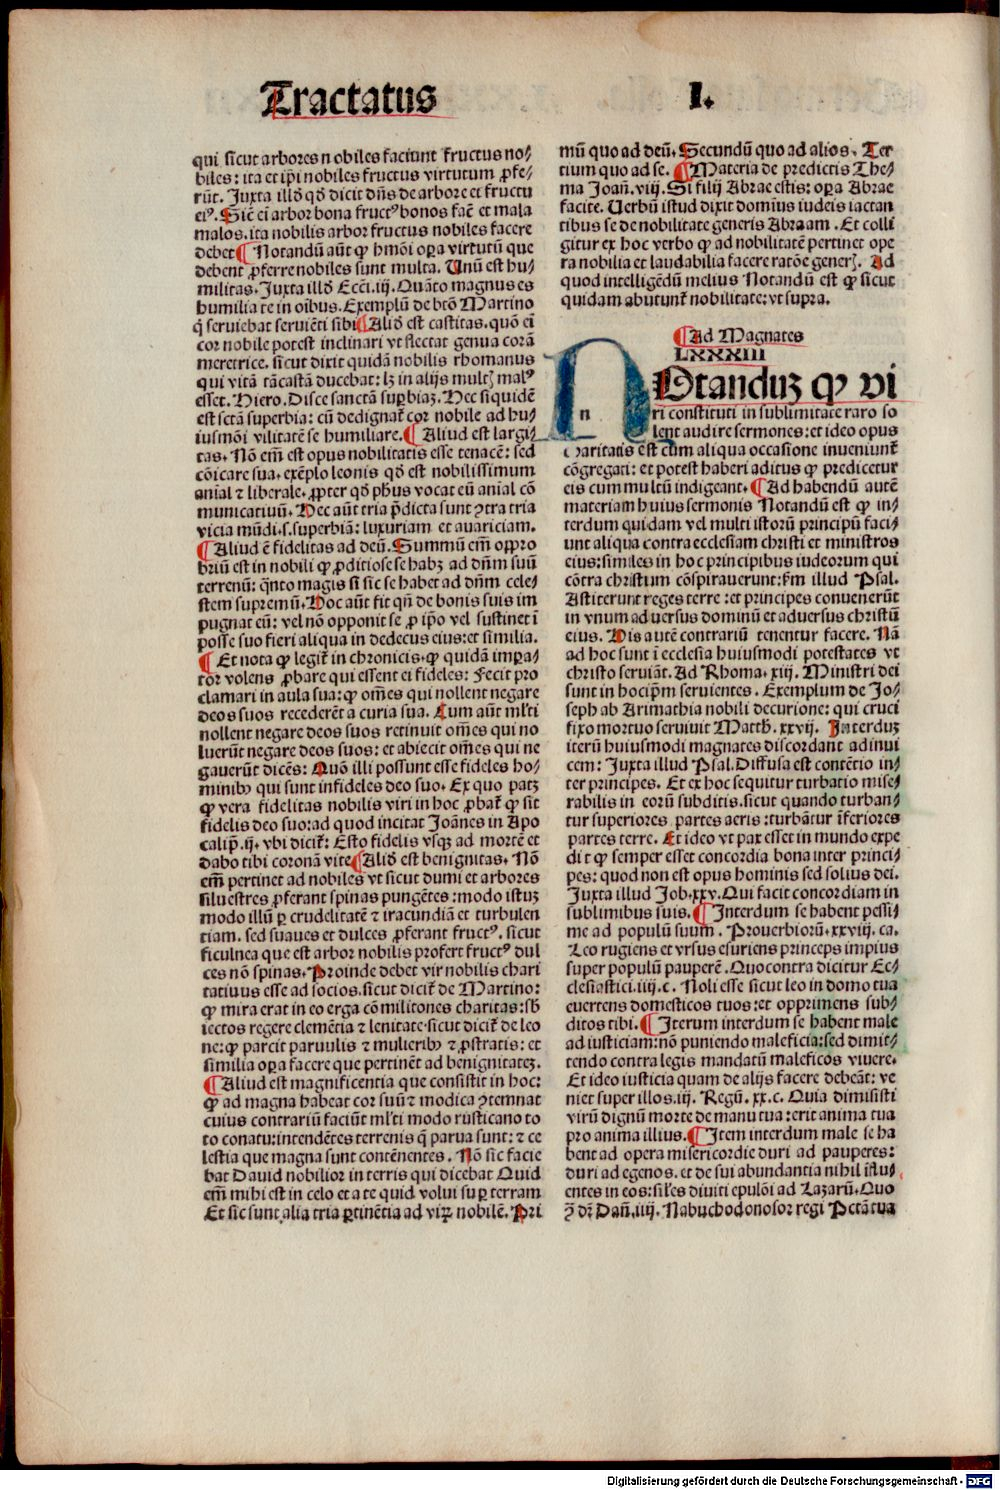 Tractatus I.
qui sicut arbores nobiles faciunt fructus no/
biles: ita et ipi nobiles fructus virtutum ꝓfe/
rūt. Juxta illḋ qḋ dicit dn̄s de arbore et fructu
eiꝰ. Sic̄ ei arbor bona fructꝰ bonos fac̄ et mala
malos. ita nobilis arbor fructus nobiles facere
debet ¶ Notandū aūt ꝙ hmōi oꝑa virtutū que
debent ꝓferre nobiles sunt multa. Unū est hu/
militas. Juxta illḋ Ecci. iij. Quāto magnus es
humilia te in oībus. Exemplū de bto Martino
q̄ seruiebat seruiēti sibi ¶ Aliḋ est castitas. quō ei
cor nobile potest inclinari vt flectat genua corā
meretrice. sicut dixit quidā nobilis rhomanus
qui vitā tā castā ducebat: lꝫ in alijs multꝭ malꝰ
esset. Hiero. Disce sanctā suꝑbiaꝫ. Hec siquidē
est sctā superbia: cū dedignat̄ cor nobile ad hu/
iusmōi vilitatē se humiliare. ¶ Aliud est largi/
tas. Nō em̄ est opus nobilitatis esse tenacē: sed
cōicare sua. exēplo leonis qḋ est nobilissimum
anīal ⁊ liberale. ꝓpter qḋ ph̄us vocat eū anial cō
municatiuū. Hec aūt tria p̄dicta sunt ꝯtra tria
vicia mūdi. s. superbiā: luxuriam et auariciam.
¶ Aliud ē fidelitas ad deū. Summū em̄ oppro
briū est in nobili ꝙ ꝓditiose se habꝫ ad dn̄m suū
terrenū: qn̄to magis si sic se habet ad dn̄m cele/
stem supremū. Hoc aūt fit qn̄ de bonis suis im
pugnat eū: vel nō opponit se ꝓ ip̄o vel sustinet ī
posse suo fieri aliqua in dedecus eius: et similia.
¶ Et nota ꝙ legit̄ in chronicis. ꝙ quidā imꝑa/
tor volens ꝓbare qui essent ei fideles: Fecit pro
clamari in aula sua: ꝙ om̄es qui nollent negare
deos suos recederēt a curia sua. Cum aūt ml̄ti
nollent negare deos suos retinuit om̄es qui no
luerūt negare deos suos: et abiecit om̄es qui ne
gauerūt dicēs: Quō illi possunt esse fideles ho/
minibꝰ qui sunt infideles deo suo. Ex quo patꝫ
ꝙ vera fidelitas nobilis viri in hoc ꝓbat̄ ꝙ sit
fidelis deo suo: ad quod incitat Joānes in Apo
calip̄. ij. vbi dicit̄: Esto fidelis vsqꝫ ad mortē et
dabo tibi coronā vite ¶ Aliḋ est benignitas. Nō
em̄ pertinet ad nobiles vt sicut dumi et arbores
siluestres ꝓferant spinas pungētes: modo istuꝫ
modo illū ꝑ crudelitatē ⁊ iracundiā et turbulen
tiam. sed suaues et dulces ꝓferant fructꝰ. sicut
ficulnea que est arbor nobilis profert fructꝰ dul
ces nō spinas. Proinde debet vir nobilis chari
tatiuus esse ad socios. sicut dicit̄ de Martino:
ꝙ mira erat in eo erga cōmilitones charitas: sb̄
iectos regere clemētia ⁊ lenitate. sicut dicit̄ de leo
ne: ꝙ parcit paruulis ⁊ mulieribꝰ ⁊ ꝓstratis: et
similia oꝑa facere que pertinēt ad benignitateꝫ.
¶ Aliud est magnificentia que consistit in hoc:
ꝙ ad magna habeat cor suū ⁊ modica ꝯtemnat
cuius contrariū faciūt ml̄ti modo rusticano to
to conatu: intendētes terrenis q̄ parua sunt: ⁊ ce
lestia que magna sunt contēnentes. Nō sic facie
bat Dauid nobilior in terris qui dicebat Quid
em̄ mihi est in celo et a te quid volui suꝑ terram
Et sic sunt alia tria ꝑtinētia ad viꝝ nobilē. Pri
mū quo ad deū. Secundū quo ad alios. Ter
tium quo ad se. ¶ Materia de predictis The/
ma Joan̄. viij. Si filij Abrae estis: oꝑa Abrae
facite. Uerbū istud dixit domīus iudeis iactan
tibus se de nobilitate generis Abraam. Et colli
gitur ex hoc verbo ꝙ ad nobilitatē pertinet ope
ra nobilia et laudabilia facere ratōe generꝭ. Ad
quod intelligēdū melius Notandū est ꝙ sicut
quidam abutunt̄ nobilitate: vt supra.
¶ Ad Magnates
LXXXIII
n
NOtanduꝫ ꝙ vi
ri constituti in sublimitate raro so
lent audire sermones: et ideo opus
charitatis est cum aliqua occasione inueniunt̄
cōgregati: et potest haberi aditus ꝙ predicetur
eis cum multū indigeant. ¶ Ad habendū autē
materiam huius sermonis Notandū est ꝙ in/
terdum quidam vel multi istorū principū faci/
unt aliqua contra ecclesiam christi et ministros
eius: similes in hoc principibus iudeorum qui
cōtra christum cōspirauerunt: s̄m illud Psal.
Astiterunt reges terre: et principes conuenerūt
in vnum aduersus dominū et aduersus christū
eius. His autē contrariū tenentur facere. Nā
ad hoc sunt ī ecclesia huiusmodi potestates vt
christo seruiāt. Ad Rhoma. xiij. Ministri dei
sunt in hocip̄m seruientes. Exemplum de Jo/
seph ab Arimathia nobili decurione: qui cruci
fixo mortuo seruiuit Matth̄. xxvij. Interduꝫ
iterū huiusmodi magnates discordant adinui
cem: Juxta illud Psal. Diffusa est contētio in/
ter principes. Et ex hoc sequitur turbatio mise/
rabilis in eorū subditis. sicut quando turban/
tur superiores partes aeris: turbātur īferiores
partes terre. Et ideo vt pax esset in mundo expe
dit ꝙ semper esset concordia bona inter princi/
pes: quod non est opus hominis sed solius dei.
Juxta illud Job. xxv. Qui facit concordiam in
sublimibus suis. ¶ Interdum se habent pessi/
me ad populū suum. Prouerbiorū. xxviij. ca.
Leo rugiens et vrsus esuriens princeps impius
super populū pauperē. Quo contra dicitur Ec/
clesiastici. iiij. c. Noli esse sicut leo in domo tua
euertens domesticos tuos: et opprimens sub/
ditos tibi. ¶ Iterum interdum se habent male
ad iusticiam: nō puniendo maleficia: sed dimit/
tendo contra legis mandatū maleficos viuere.
Et ideo iusticia quam de alijs facere debeāt: ve
niet super illos. iij. Regū. xx. c. Quia dimisisti
virū dignū morte de manu tua: erit anima tua
pro anima illius. ¶ Item interdum male se ha
bent ad opera misericordie duri ad pauperes:
duri ad egenos. et de sui abundantia nihil īflu/
entes in eos: sil̄es diuiti epulōi ad Lazarū. Quo
ꝯ̄ dr̄ Dan̄. iiij. Nabuchodonosor regi Pctā tua
Digitalisierung gefördert durch die Deutsche Forschungsgemeinschaft - DFG